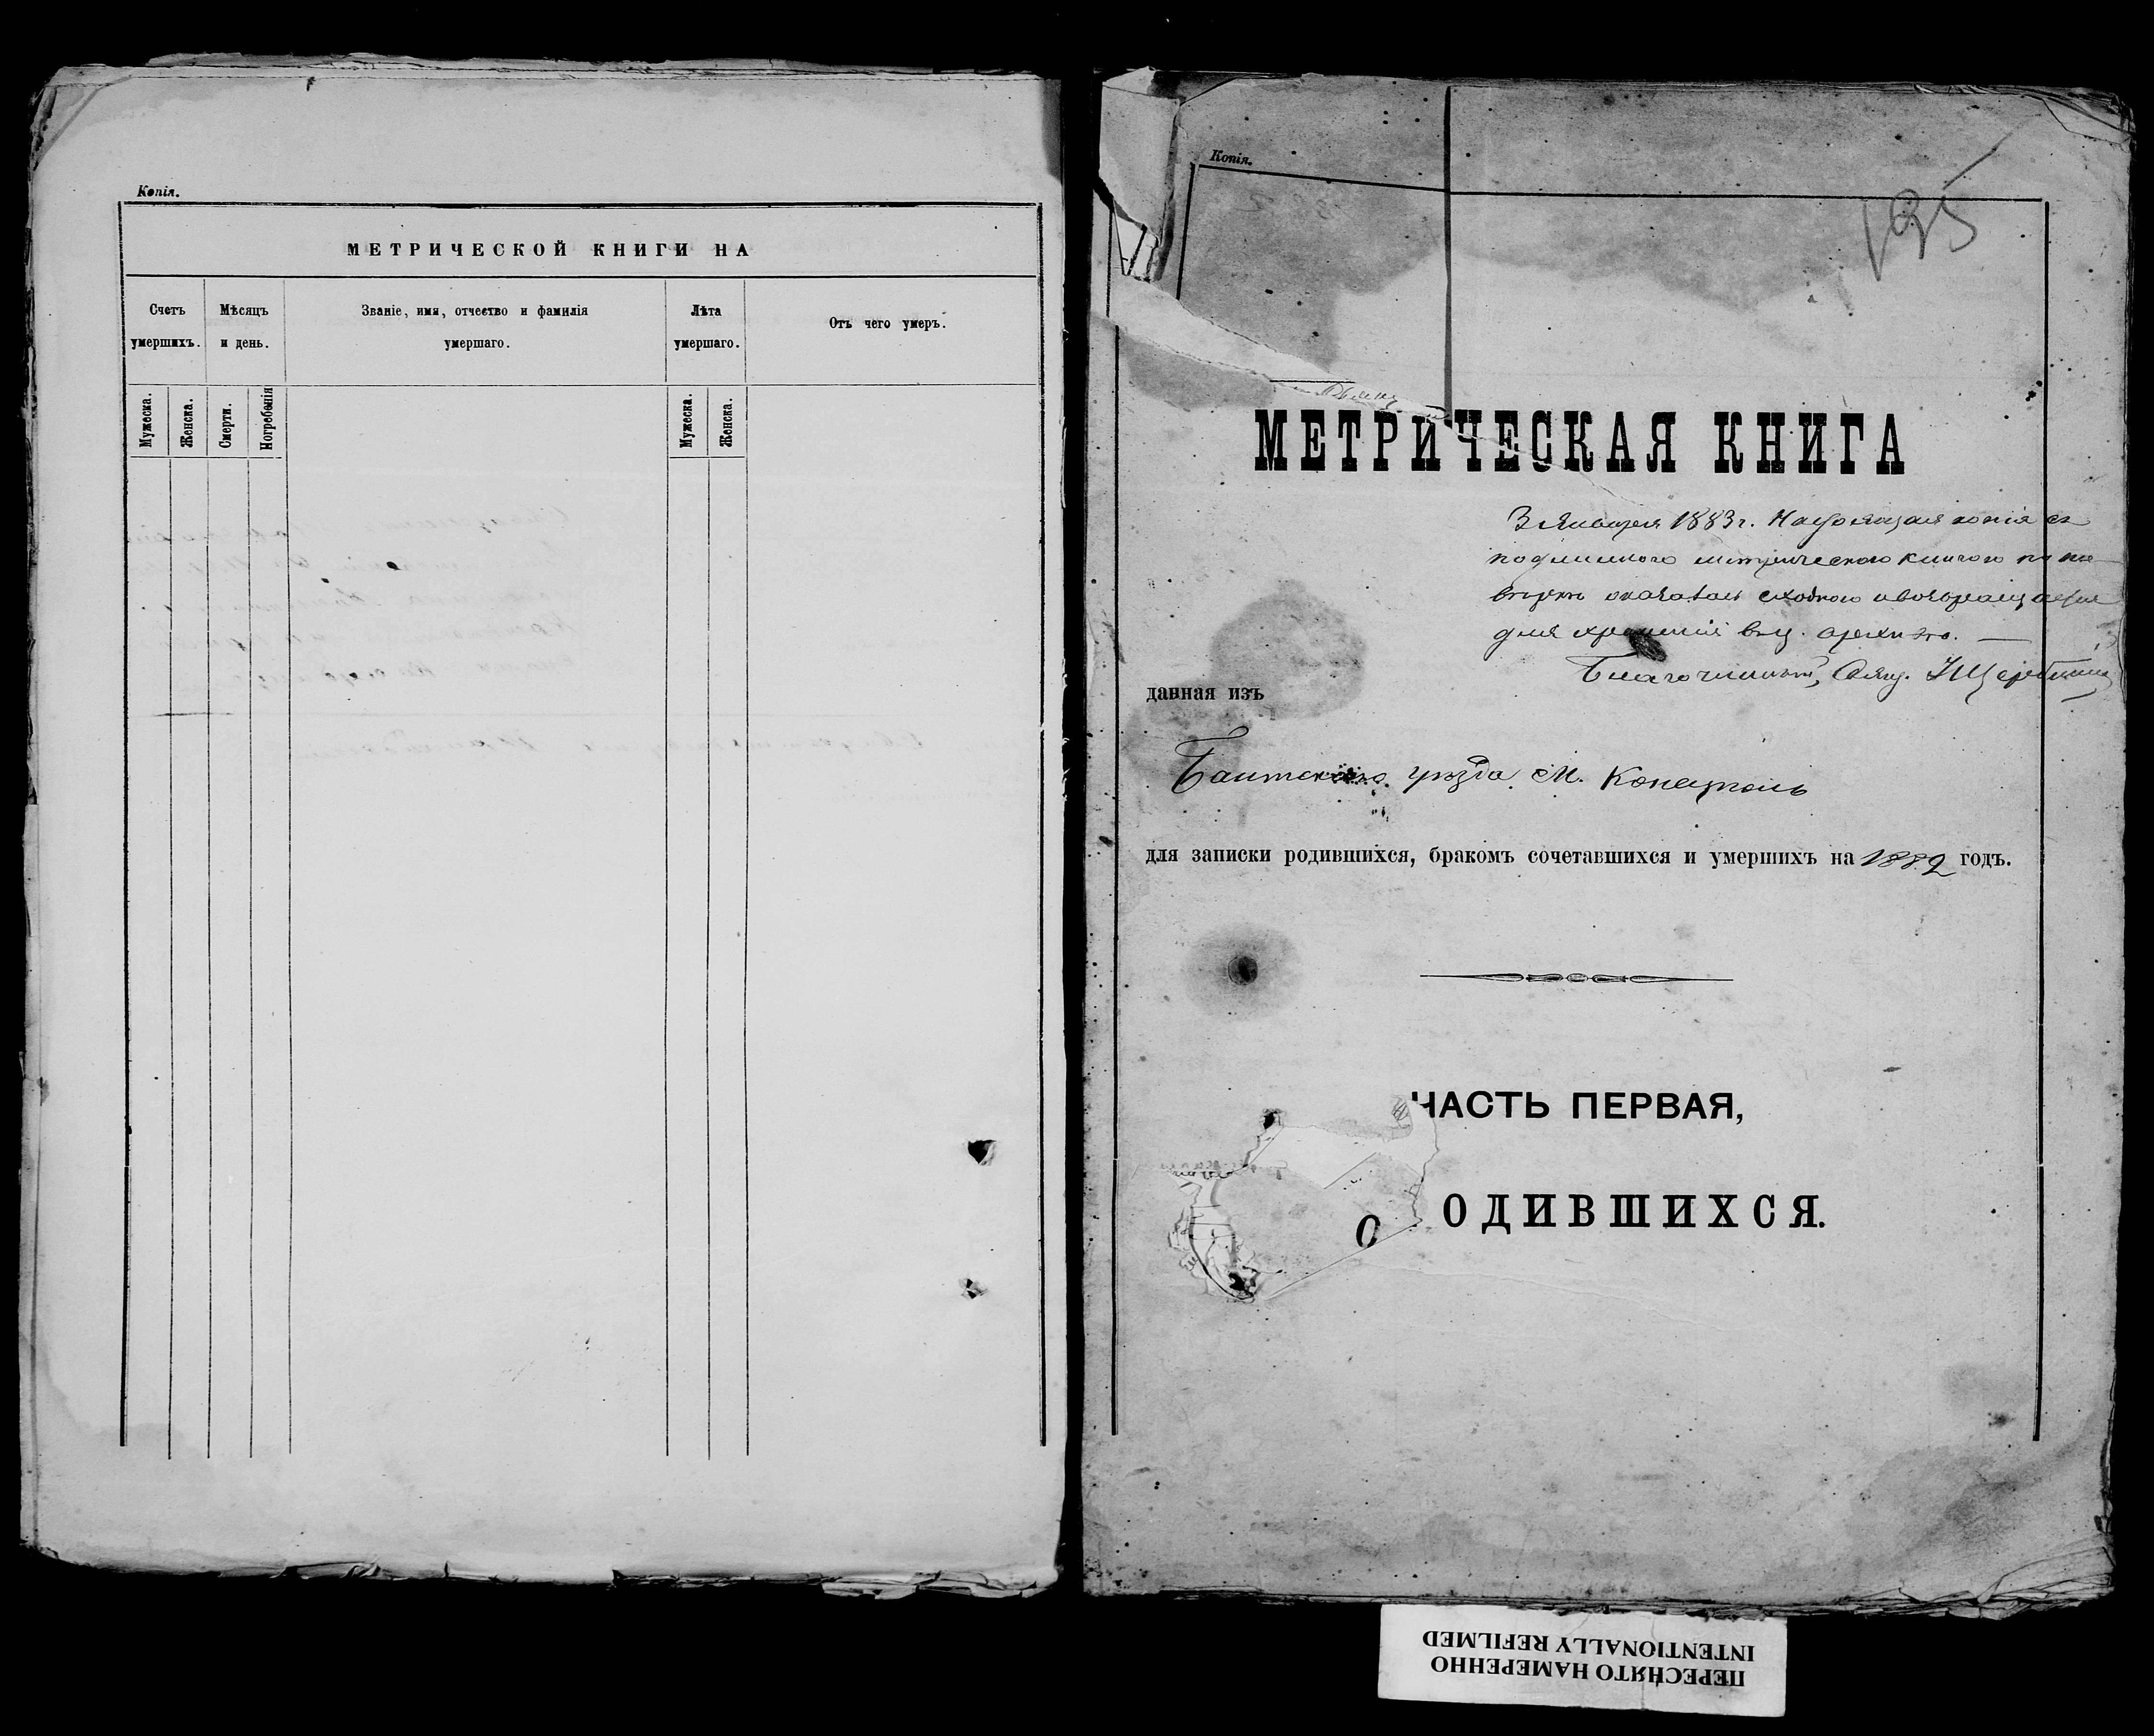 Копія.
МЕТРИЧЕСКОЙ КНИГИ НА
Счетъ умершихъ.
Мѣсяцъ и день.
Званіе, имя, отчество и фамилія умершаго.
Лѣта умершаго.
Отъ чего умеръ.
Мужеска.
Женска.
Смерти.
Погребенія
Мужеска.
Женска.
Копія.
195
МЕТРИЧЕСКАЯ КНИГА
3 Января 1883 г. Настоящая копія съ
подлинною метрическою книгою по по
вѣркѣ оказалась сходною и возвращается
для храненія въ ц. архивъ. —
Благочинный, Свящ. Щербина
данная изъ
Балтскаго уѣзда М. Конецполь
для записки родившихся, бракомъ сочетавшихся и умершихъ на 1882 годъ.
ЧАСТЬ ПЕРВАЯ,
О ОДИВШИХСЯ.
ПЕРЕСНЯТО НАМЕРЕННО
INTENTIONALLY REFILMED